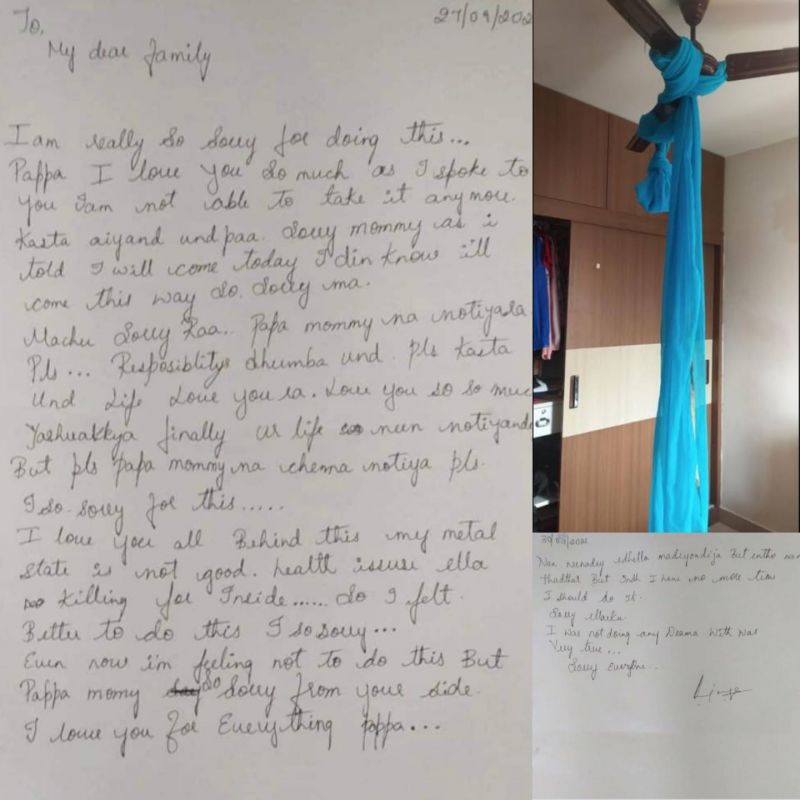 To,
27/09/202
My dear family
I am really so sorry for doing this...
Pappa I love you so much as I spoke to
you Iam not able to take it anymore.
Kasta aiyand und paa. Sorry mommy as i
told I will come today I din know i'll
come this way so. Sorry ma.
Machu Sorry Raa.. Papa mommy na notiyala
Pls... Resposiblitys dhumba und. pls Kasta
Und life Love you ra. Love you so so muc
finally ur life neen notiyande
But pls papa mommy na chenna notiya pls.
I so sorry for this.....
I love you all Behind this my metal
state is not good. health issuse ella
killing for Inside...... So I felt.
Better to do this I so sorry...
Even now i'm feeling not to do this But
Pappa momy so Sorry from your side.
I love you for Everything pappa...
30/09/202
But
But I have no more time
I should do it.
Sorry
I was not doing any Drama with was
Very true...
Sorry Everyone...